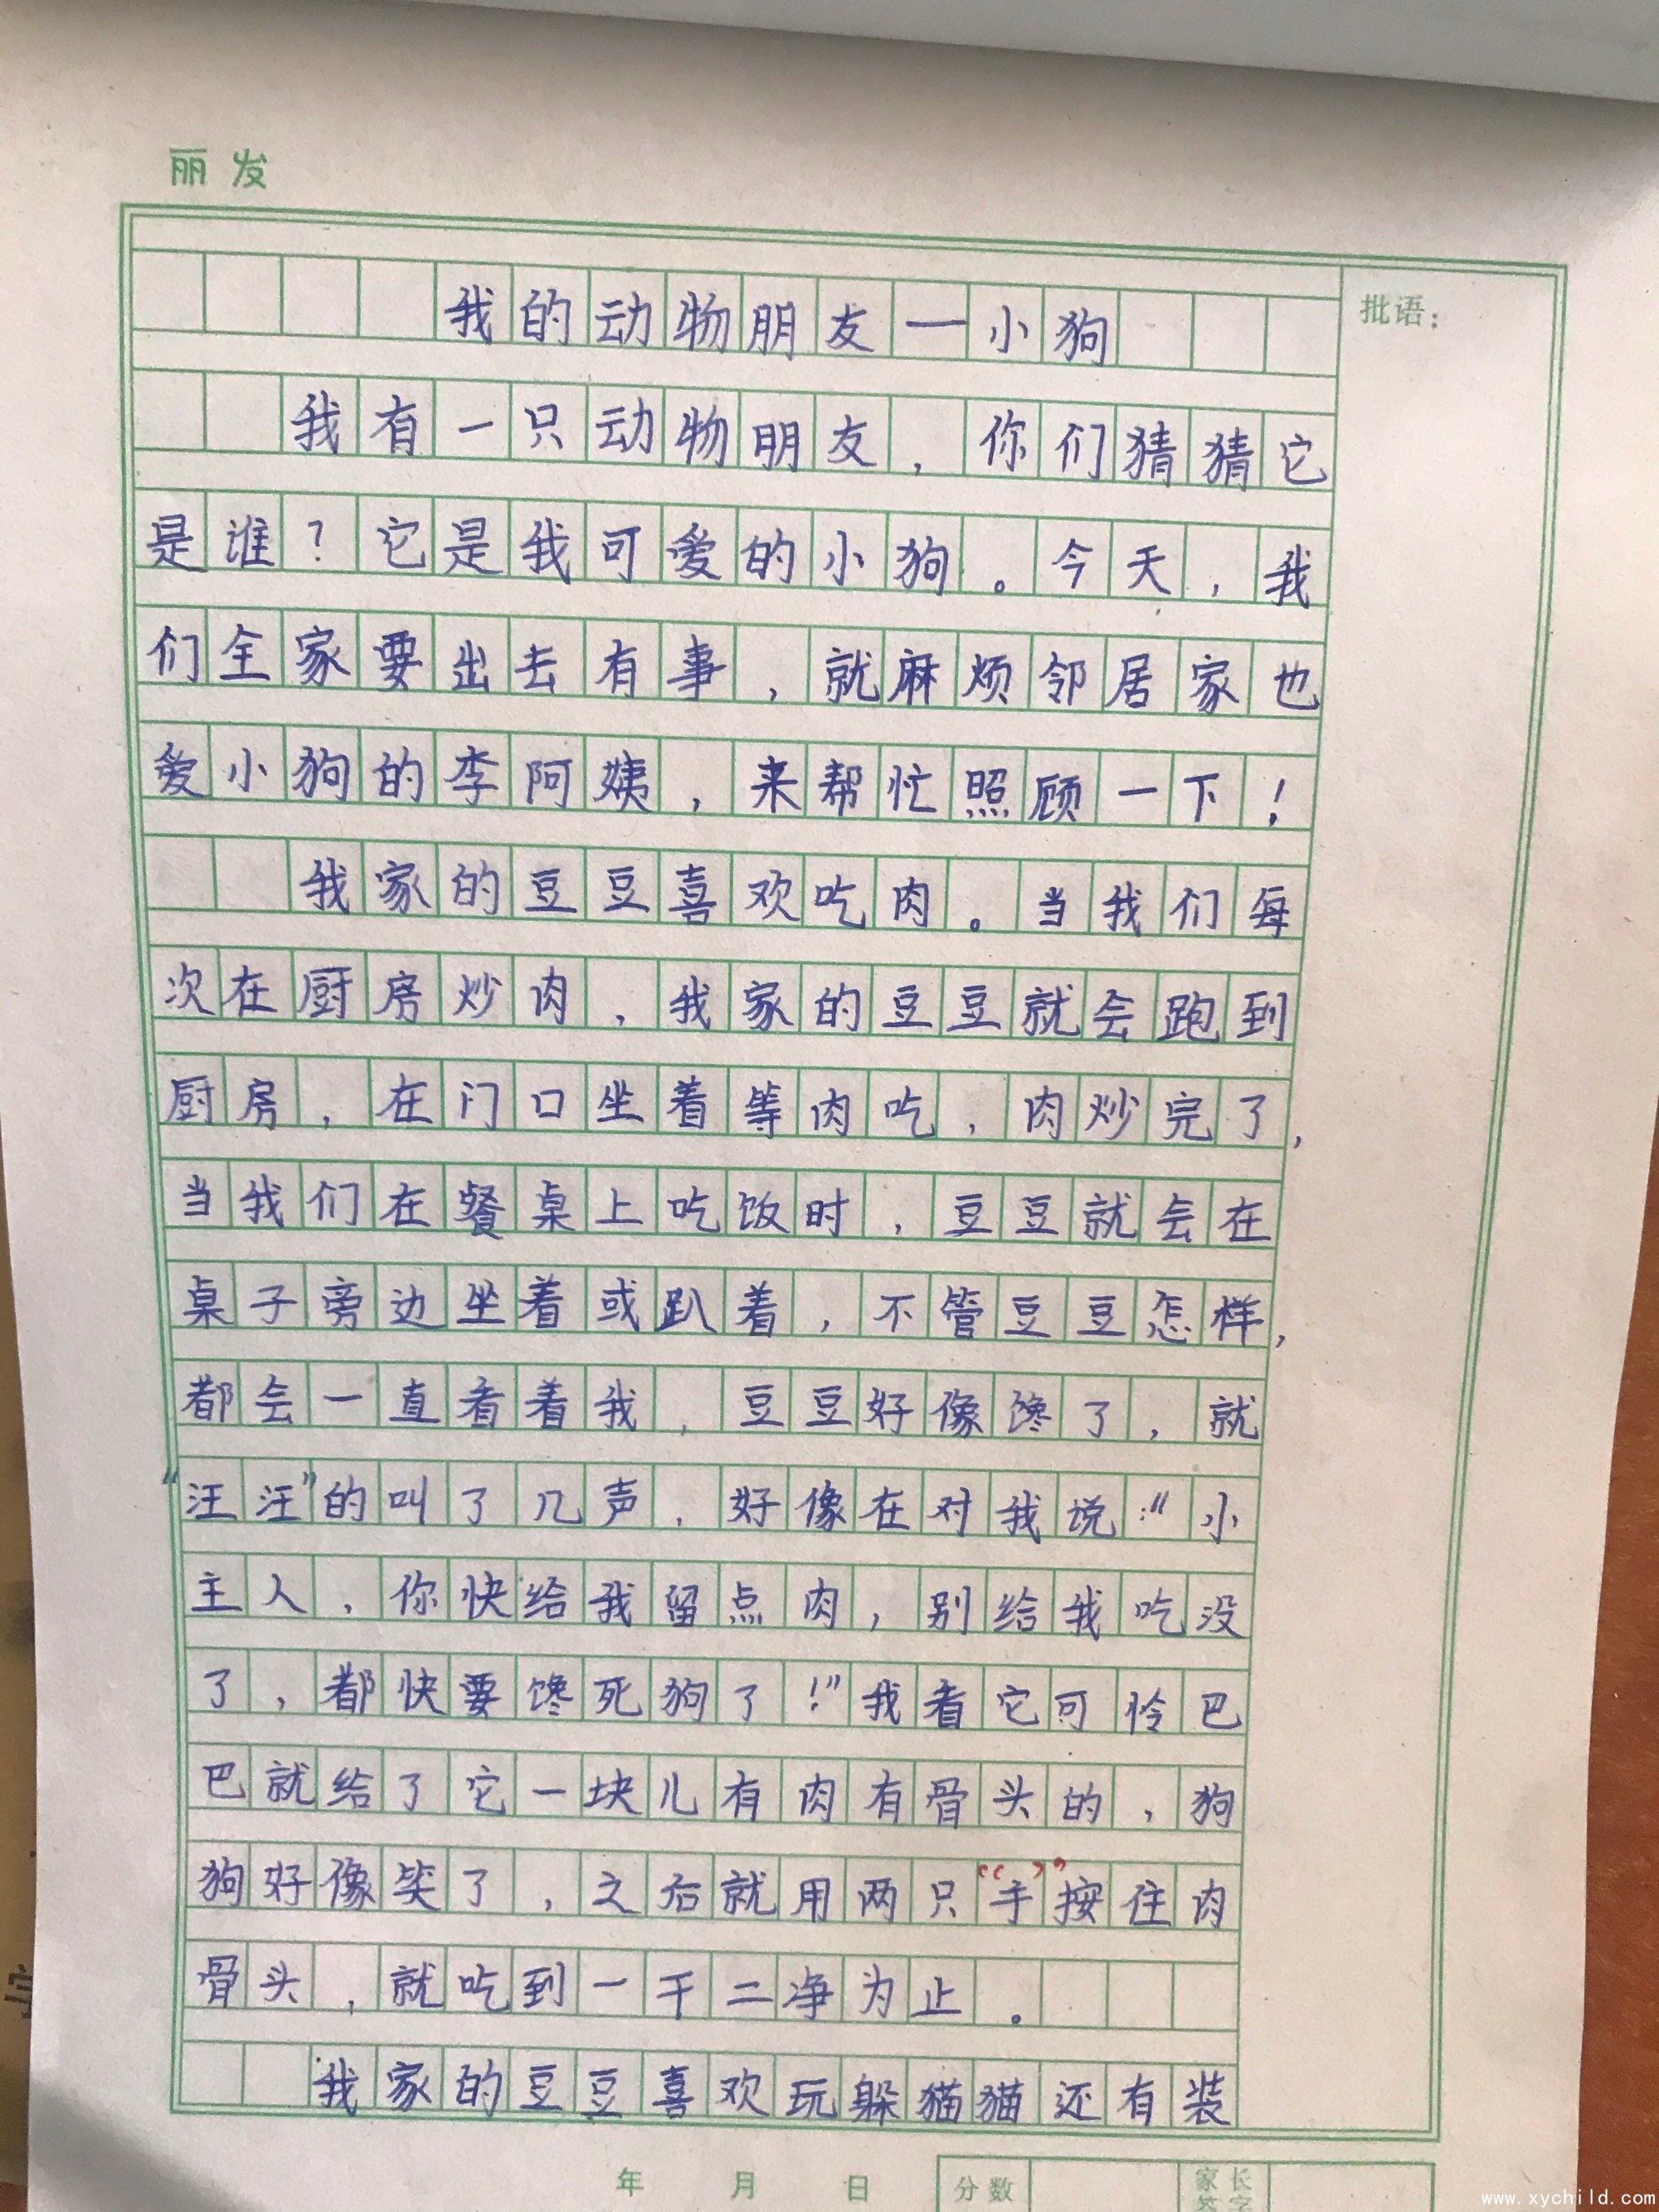 丽发
批语：
我的动物朋友—小狗
我有一只动物朋友，你们猜猜它
是谁？它是我可爱的小狗。今天，我
们全家要出去有事，就麻烦邻居家也
爱小狗的李阿姨，来帮忙照顾一下！
我家的豆豆喜欢吃肉。当我们每
次在厨房炒肉，我家的豆豆就会跑到
厨房，在门口坐着等肉吃，肉炒完了，
当我们在餐桌上吃饭时，豆豆就会在
桌子旁边坐着或趴着，不管豆豆怎样，
都会一直看着我，豆豆好像馋了，就
“汪汪”的叫了几声，好像在对我说：“小
主人，你快给我留点肉，别给我吃没
了，都快要馋死狗了！”我看它可怜巴
巴就给了它一块儿有肉有骨头的，狗
狗好像笑了，之后就用两只“手”按住肉
骨头，就吃到一干二净为止。
我家的豆豆喜欢玩躲猫猫还有装
年 月 日 分数 家长
签字
www.xychild.com